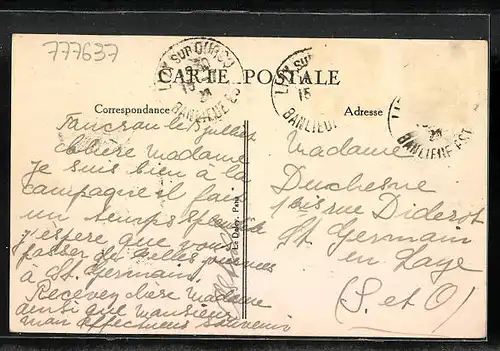 777637
LIZY SUR OURCQ
15
24
BANLIEUE EST
LIZY SUR
15
BANLIEUE
LI
24
BANLIEUE EST
CARTE POSTALE
Correspondance
Adresse
le 8 juillet
chère Madame
je suis bien à la
campagne il fait
un temps splendide
j'espère que vous
passer de belles journées
a St. Germain.
Recevez chère Madame
ainsi que Monsieur
mon affectueux souvenir
Le Deley Paris
Madame
Duchesne
1 bis rue Diderot
St Germain
en Laye
(S. et O)